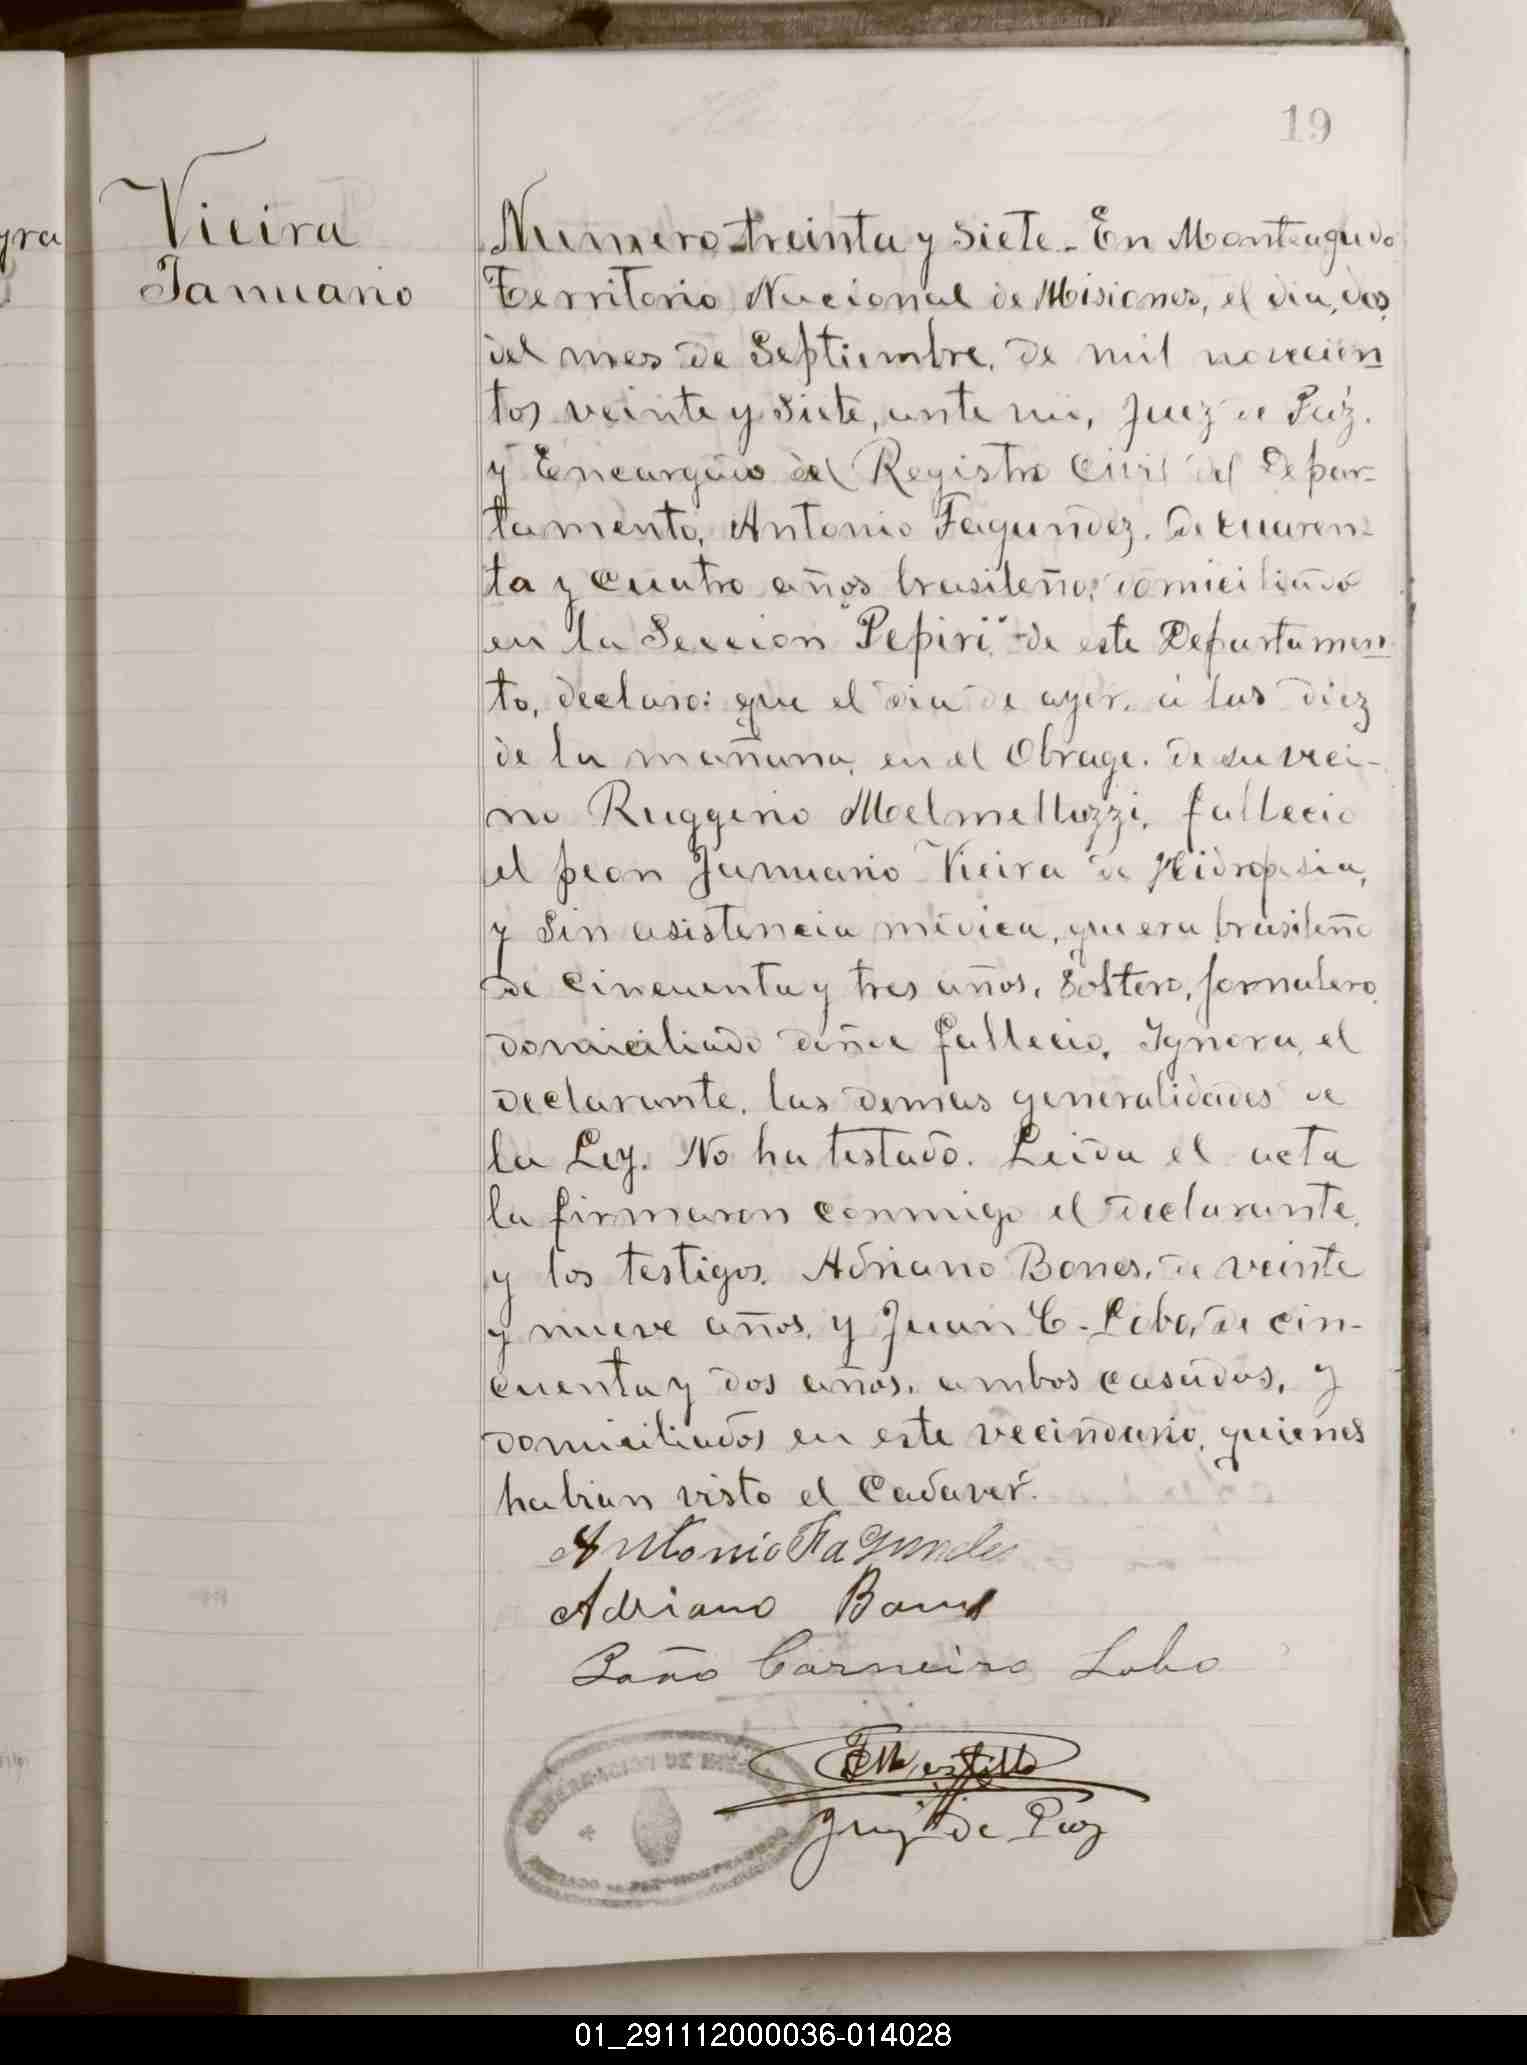 19
Vieira
Januario
Numero treinta y siete. En Monteagudo
Territorio Nacional de Misiones, el dia, dos,
del mes de Septiembre, de mil novecien
tos veinte y siete, ante mi, Juez de Paz.
y Encargado del Registro Civil del Depar-
tamento, Antonio Fagundez, de cuaren-
ta y cuatro años brasileño, domiciliado
en la Seccion "Pepiri" de este Departamen
to, declaro: que el dia de ayer, á las diez
de la mañana, en el Obrage, de su veci-
no Ruggerio Melmelluzzi, fallecio
el peon Januario Vieira de Hidropesia,
y sin asistencia médica, que era brasileño
de cincuenta y tres años, Soltero, jornalero,
domiciliado donde fallecio. Ignora, el
declarante, las demas generalidades de
la Ley. No ha testado. Leida el acta
la firmaron conmigo el declarante,
y los testigos, Adriano Bones, de veinte
y nueve años, y Juan C. Lobo, de cin-
cuenta y dos años, ambos casados, y
domiciliados en este vecindario, quienes
habian visto el Cadaver.
Antonio Fagundes
Adriano Bones
João Carneiro Lobo
Juez de Paz
GOBERNACION DE
01_291112000036-014028